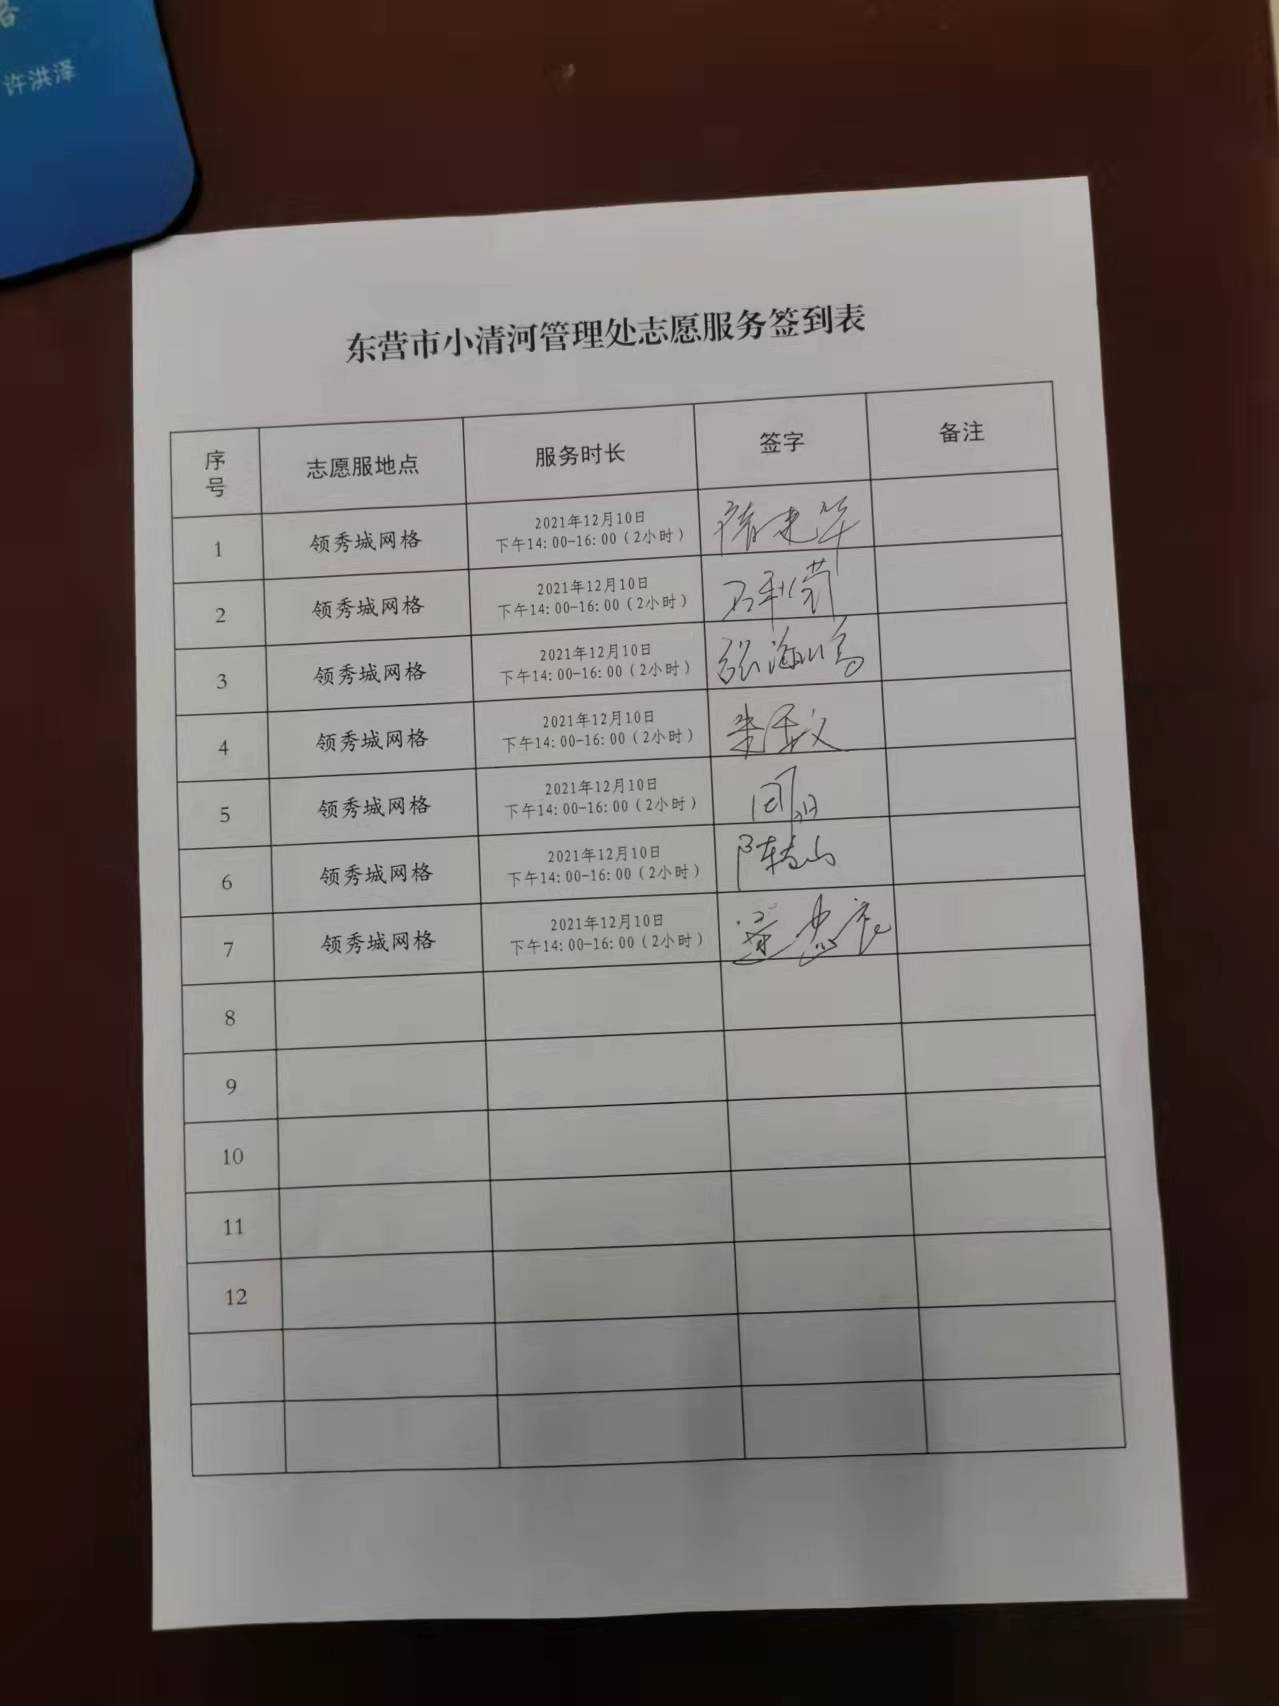 许洪泽
东营市小清河管理处志愿服务签到表
序号 志愿服地点 服务时长 签字 备注
1 领秀城网格 2021年12月10日
下午14:00-16:00(2小时)
2 领秀城网格 2021年12月10日
下午14:00-16:00(2小时)
3 领秀城网格 2021年12月10日
下午14:00-16:00(2小时)
4 领秀城网格 2021年12月10日
下午14:00-16:00(2小时)
5 领秀城网格 2021年12月10日
下午14:00-16:00(2小时)
6 领秀城网格 2021年12月10日
下午14:00-16:00(2小时)
7 领秀城网格 2021年12月10日
下午14:00-16:00(2小时)
8
9
10
11
12